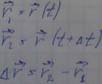 r⃗₁ = r⃗ (t)
r⃗₂ = r⃗ (t + Δt)
Δr⃗ = r⃗₂ - r⃗₁